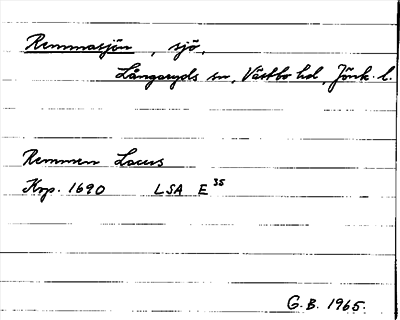 Remmasjön, sjö,
Långaryds sn, Västbo hd, Jönk. l.
Remmen Lacus
Krp. 1690 LSA E 35
G.B. 1965.